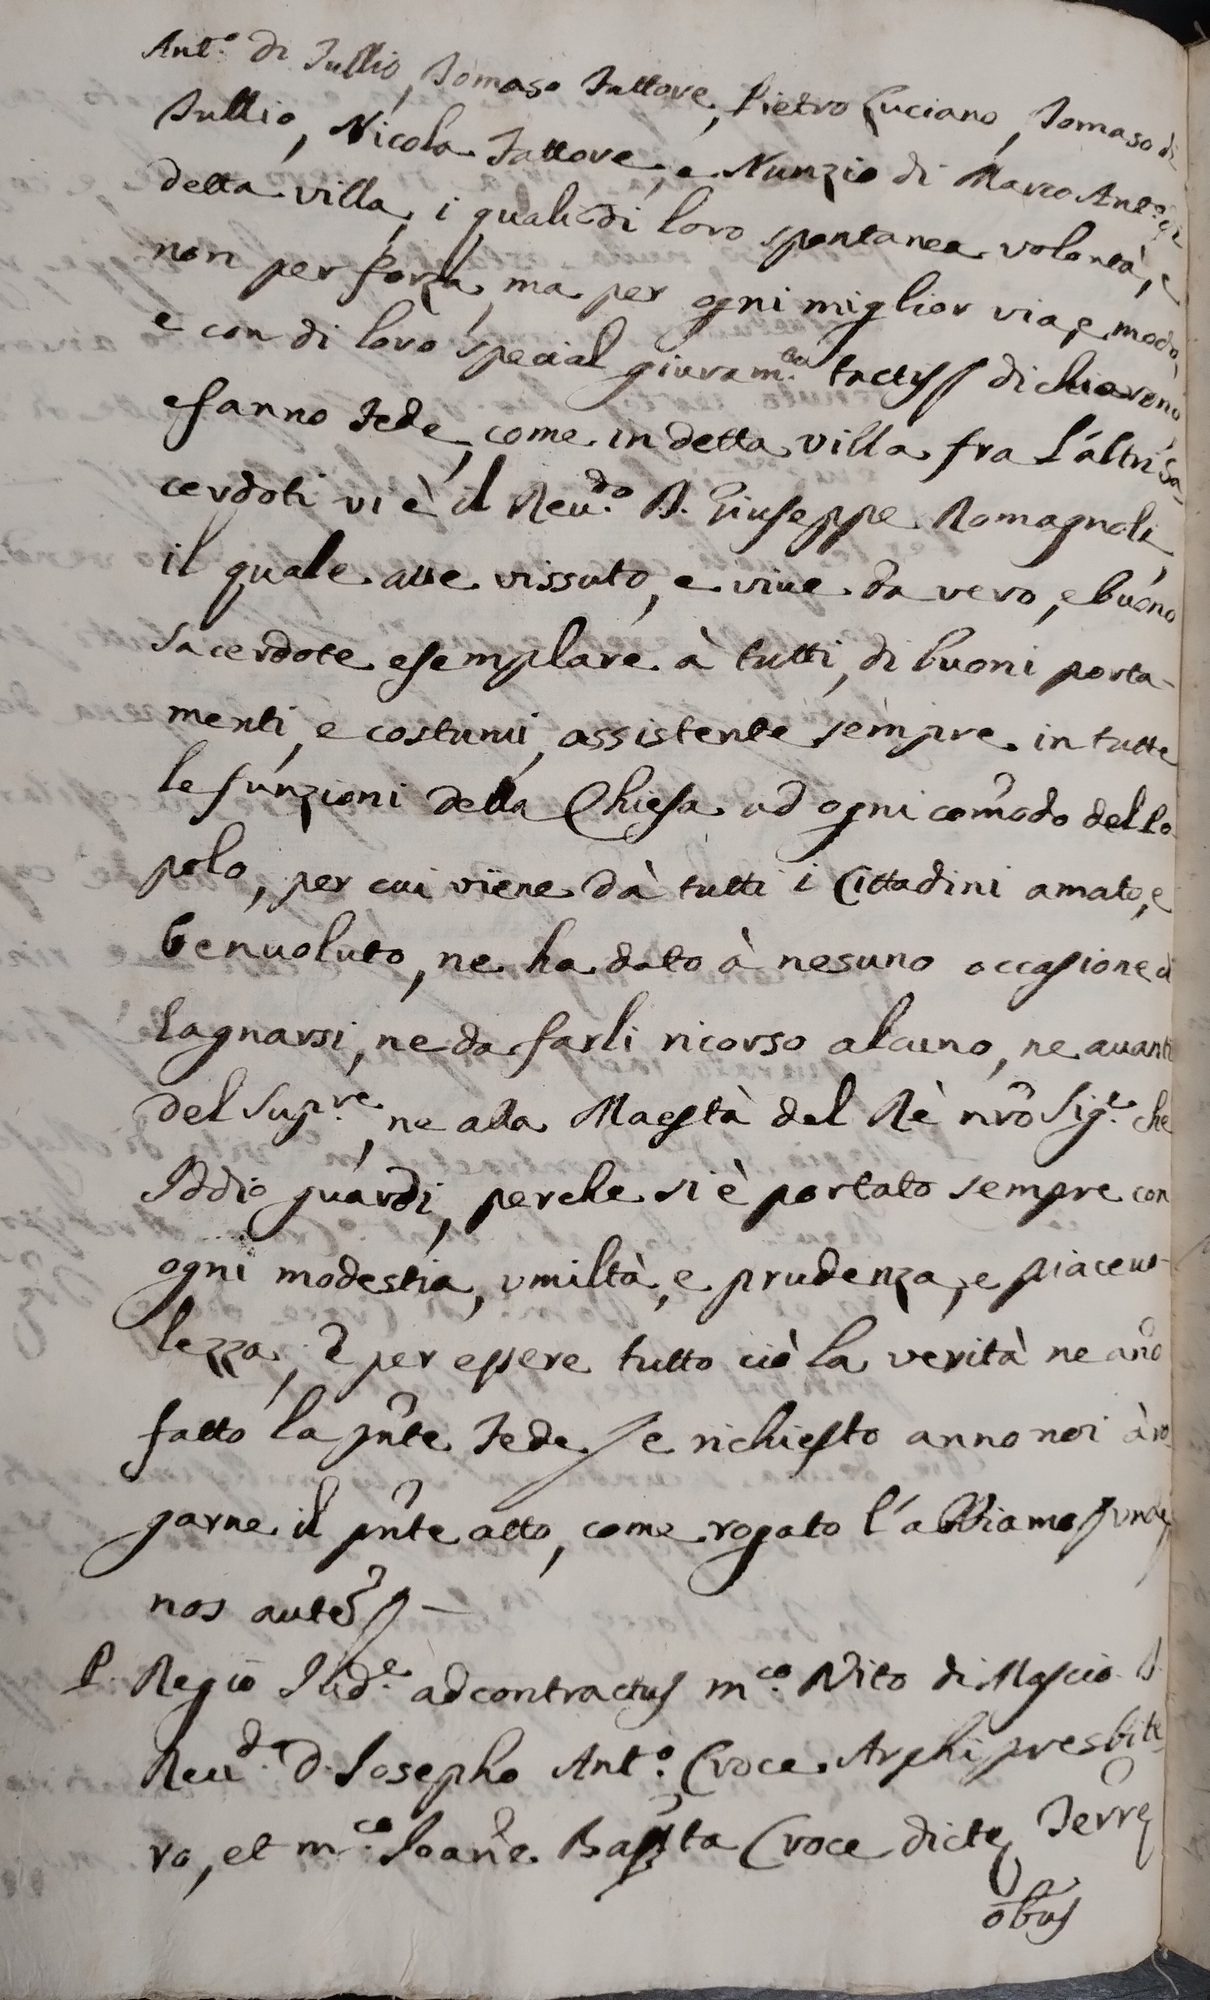 Ant.º di Tullio, Tomaso Fattore, Pietro Luciano, Tomaso di
Tullio, Nicola Fattore, e Nunzio di Marco Ant.º di
detta villa, i quali di loro spontanea volontà, e
non per forza, ma per ogni miglior via, e modo,
e con di loro special giuram.to tactis dichiarono
e fanno fede, come in detta villa fra l'altri Sa-
cerdoti vi è il Reu.do D. Giuseppe Romagnoli,
il quale ave vissuto, e vive da vero, e buono
Sacerdote esemplare à tutti, di buoni porta-
menti, e costumi, assistente sempre in tutte
le funzioni della Chiesa ad ogni comodo del Po
polo, per cui viene dà tutti i Cittadini amato, e
benuoluto, ne ha dato à nesuno occasione di
lagnarsi, ne da farli ricorso alcuno, ne auanti
del Sup.re, ne alla Maestà del Rè nrõ Sig.re che
Iddio guardi, perche si è portato sempre con
ogni modestia, umiltà, e prudenza, e piaceuo-
lezza, E per essere tutto ciò la verità ne anõ
fatto la pñte fede e richiesto anno noi à ro
garne il pñte atto, come rogato l'abbiamo unde
nos aute
P. Regio Iud.e ad contractus m.co Vito di Mascio
Reu.do D. Iosepho Ant.º Croce Archipresbite
ro, et m.co Ioañe Bapta Croce dicte Terre
obus